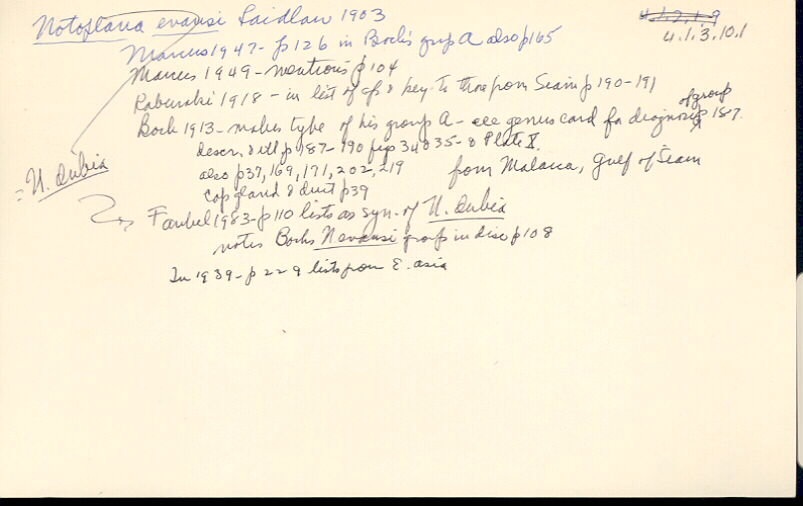 Notoplana evansi Laidlaw 1903
4.1.2.1.9
4.1.3.10.1
Marcus 1947 - p 126 in Bock's group A also p 165
Marcus 1949 - mentions p 104
in list of spp & key to those from Seam p 190-191
Bock 1913 - makes type of his group A - see genus card for diagnosis of group p 187.
descr. & ill p 187-190 figs 34 & 35 - & Plate X.
also p 37, 169, 171, 202, 219
from Malacca, Gulf of Seam
= N. dubia
cop gland & duct p 39
Faubel 1983 - p 110 lists as syn. of N. dubia
notes Bocks N evansi group in disc p 108
In 1939 - p 229 lists from E. asia